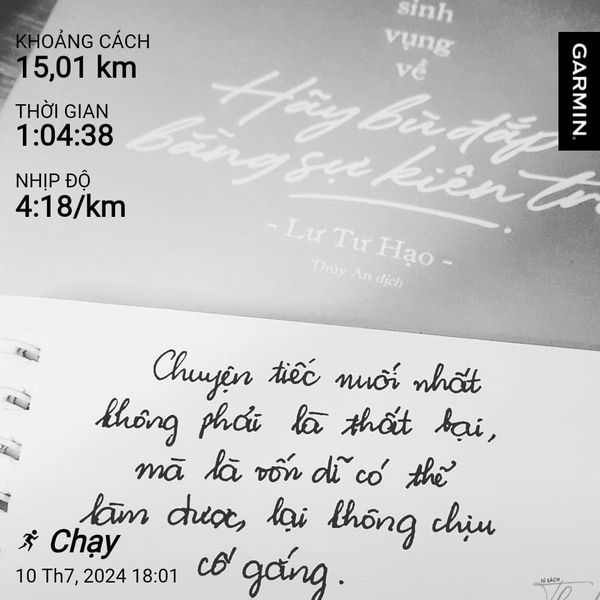 KHOẢNG CÁCH
15,01 km
THỜI GIAN
1:04:38
NHỊP ĐỘ
4:18/km
GARMIN
sinh
vụng
về
Hãy bù đắp
bằng sự kiên
- Lư Tư Hạo -
Thủy An dịch
Chuyện tiếc nuối nhất
không phải là thất bại,
mà là vốn dĩ có thể
làm được, lại không chịu
cố gắng.
Chạy
10 Th7, 2024 18:01
TỦ SÁCH